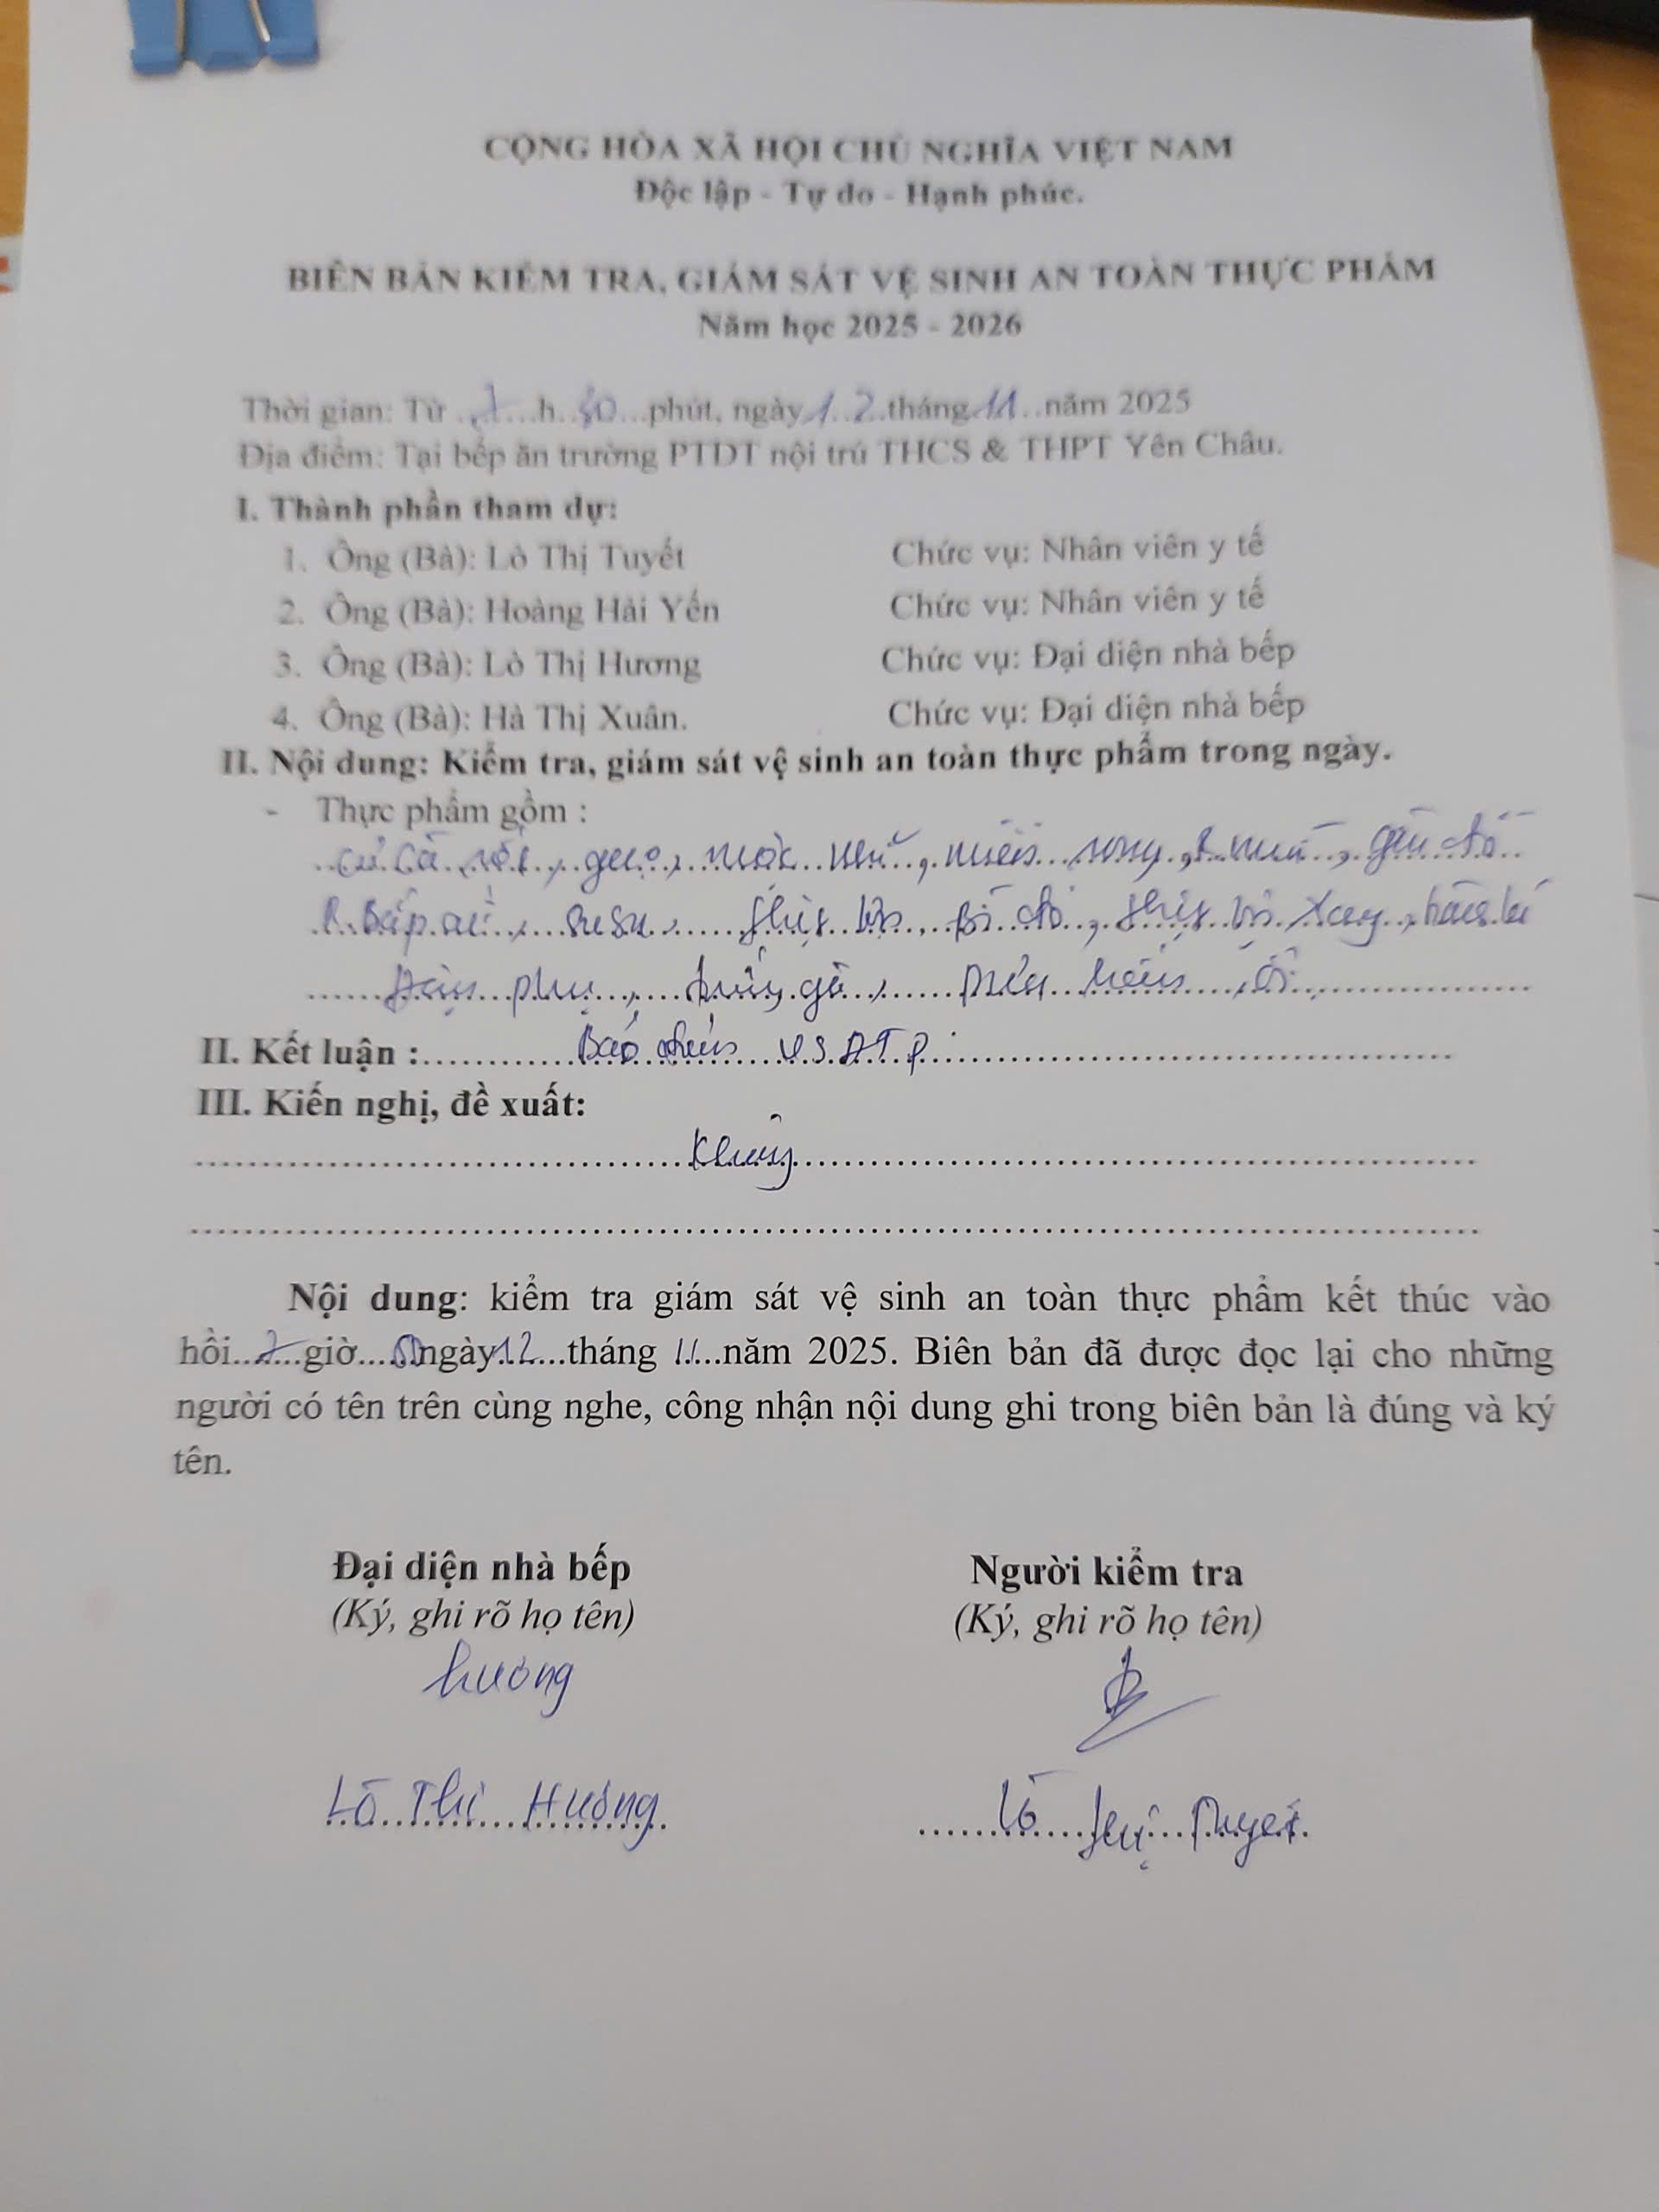 CỘNG HÒA XÃ HỘI CHỦ NGHĨA VIỆT NAM
Độc lập - Tự do - Hạnh phúc.
BIÊN BẢN KIỂM TRA, GIÁM SÁT VỆ SINH AN TOÀN THỰC PHẨM
Năm học 2025 - 2026
Thời gian: Từ ..7...h..30...phút, ngày 12 tháng 11 năm 2025
Địa điểm: Tại bếp ăn trường PTDT nội trú THCS & THPT Yên Châu.
I. Thành phần tham dự:
1. Ông (Bà): Lò Thị Tuyết Chức vụ: Nhân viên y tế
2. Ông (Bà): Hoàng Hải Yến Chức vụ: Nhân viên y tế
3. Ông (Bà): Lò Thị Hương Chức vụ: Đại diện nhà bếp
4. Ông (Bà): Hà Thị Xuân. Chức vụ: Đại diện nhà bếp
II. Nội dung: Kiểm tra, giám sát vệ sinh an toàn thực phẩm trong ngày.
- Thực phẩm gồm :
củ cà rốt, gạo, miến rong, R. mùi,
R. Bắp cải, su su, thịt lợn, Bí đỏ, thịt lợn xay, hành lá
Đậu phụ, trứng gà,
II. Kết luận : Bảo đảm VSATP.
III. Kiến nghị, đề xuất:
Không
Nội dung: kiểm tra giám sát vệ sinh an toàn thực phẩm kết thúc vào
hồi 7 giờ 50 ngày 12 tháng 11 năm 2025. Biên bản đã được đọc lại cho những
người có tên trên cùng nghe, công nhận nội dung ghi trong biên bản là đúng và ký
tên.
Đại diện nhà bếp Người kiểm tra
(Ký, ghi rõ họ tên) (Ký, ghi rõ họ tên)
Hương
Lò Thị Hương Lò Thị Tuyết